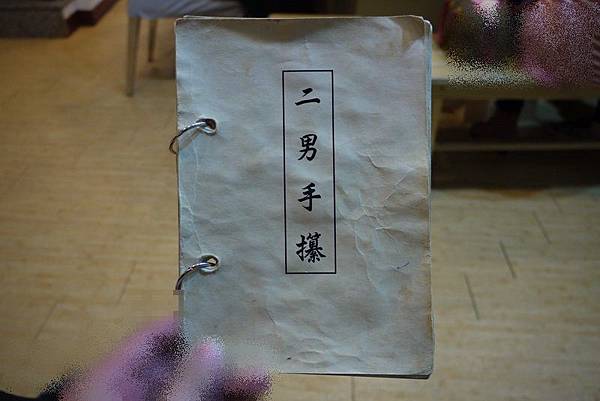 二男手攥